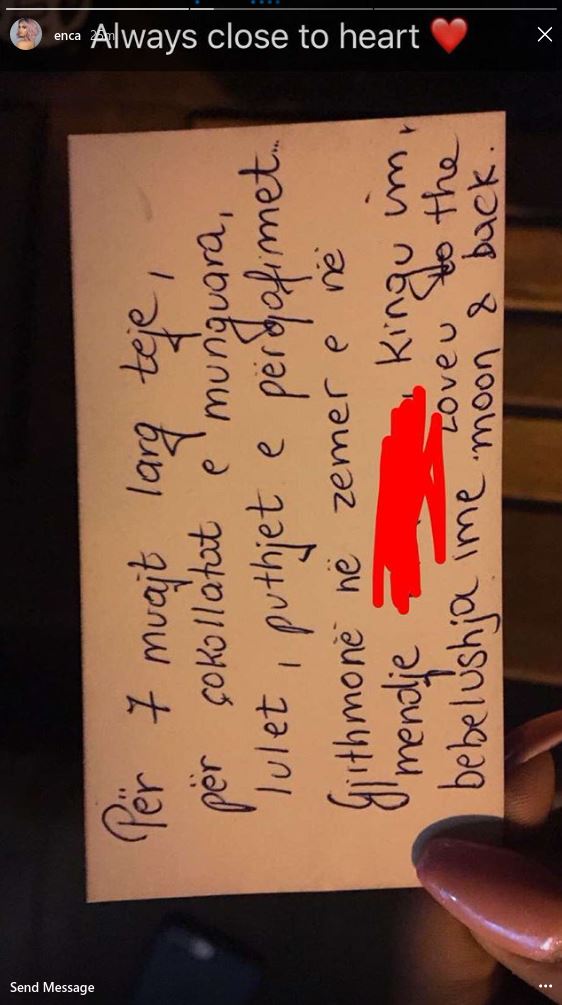 enca 25m
Always close to heart ❤️
Për 7 muajt larg teje,
për çokollatat e munguara,
lulet, puthjet e përqafimet...
Gjithmonë në zemer e në
mendje Kingu im,
bebelushja ime. Love u to the
moon & back.
Send Message